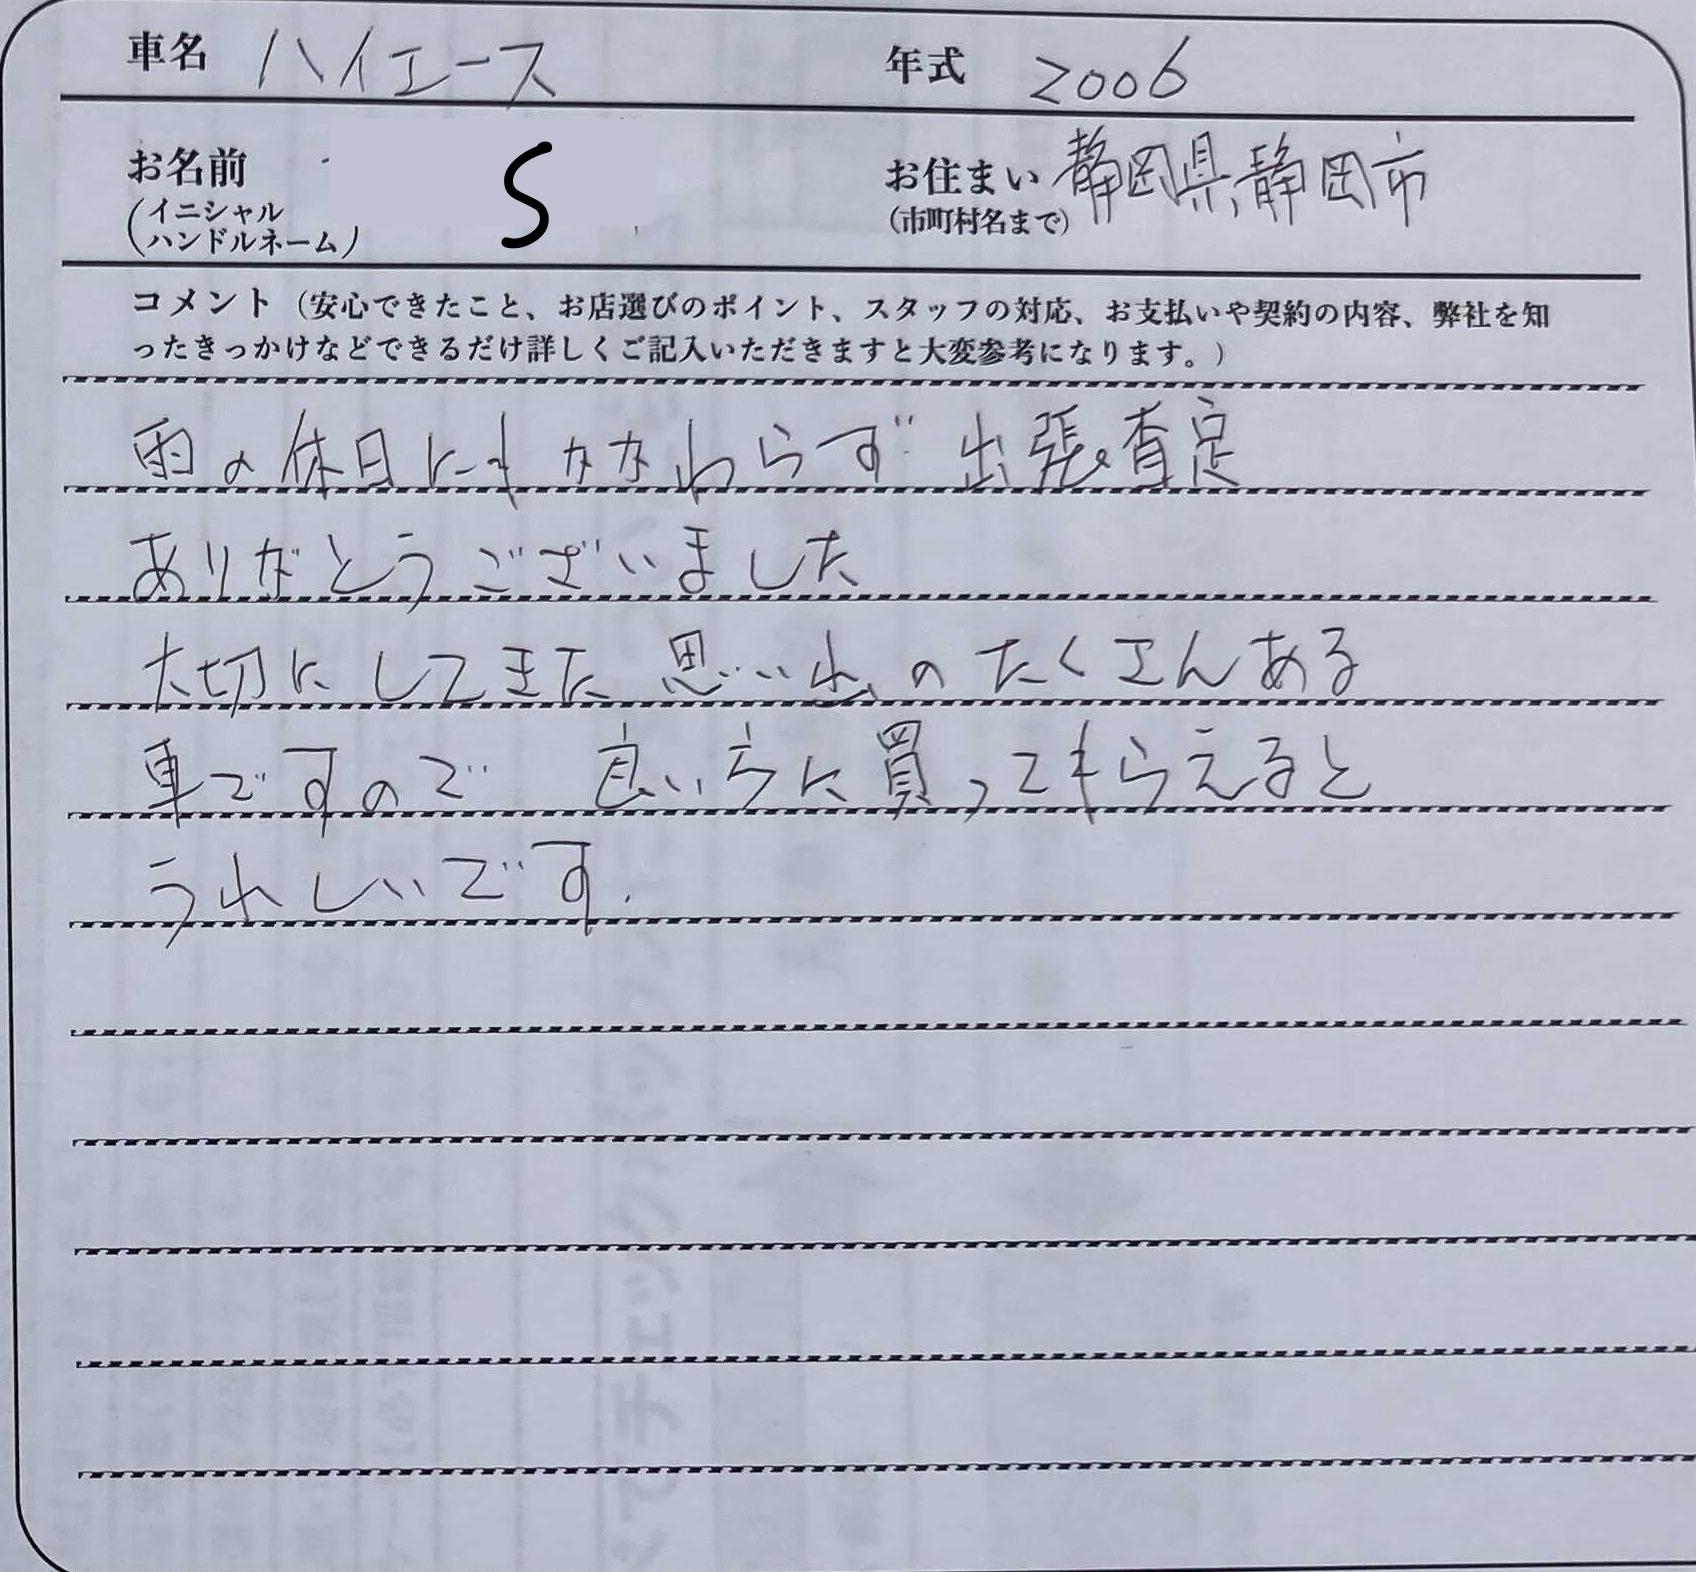 車名 ハイエース 年式 2006
お名前 S お住まい 静岡県静岡市
(イニシャル (市町村名まで)
ハンドルネーム)
コメント（安心できたこと、お店選びのポイント、スタッフの対応、お支払いや契約の内容、弊社を知
ったきっかけなどできるだけ詳しくご記入いただきますと大変参考になります。）
雨の休日にもかかわらず 出張査定
ありがとうございました
大切にしてきた 思い出のたくさんある
車ですので 良い方に買ってもらえると
うれしいです.